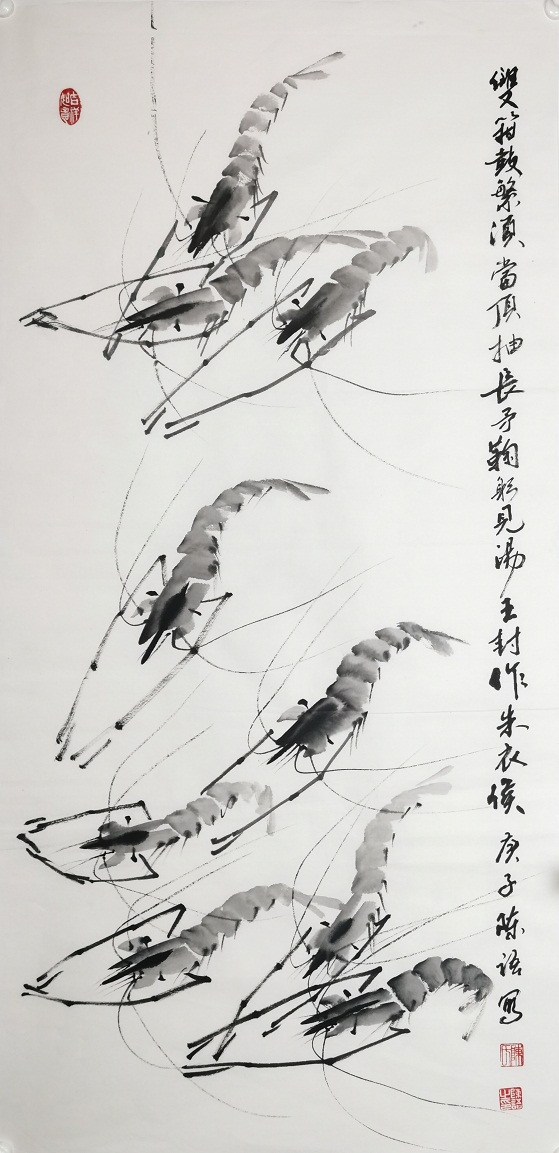 雙箝鼓繁須當頂抽長矛鞠躬見湯王封作朱衣侯 庚子陳語寫
吉祥如意